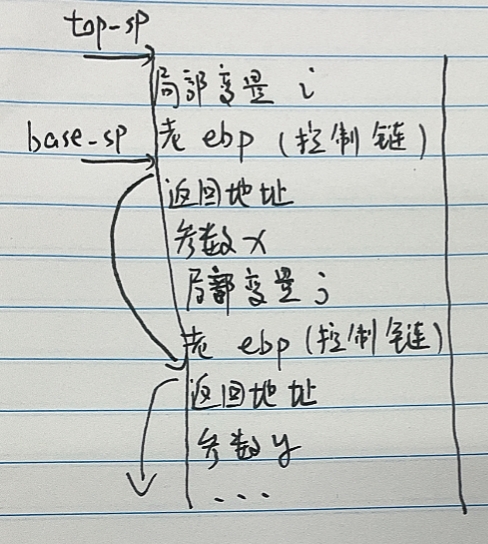 top-sp
局部变量 i
base-sp
老 ebp (控制链)
返回地址
参数 x
局部变量 j
老 ebp (控制链)
返回地址
参数 y
...